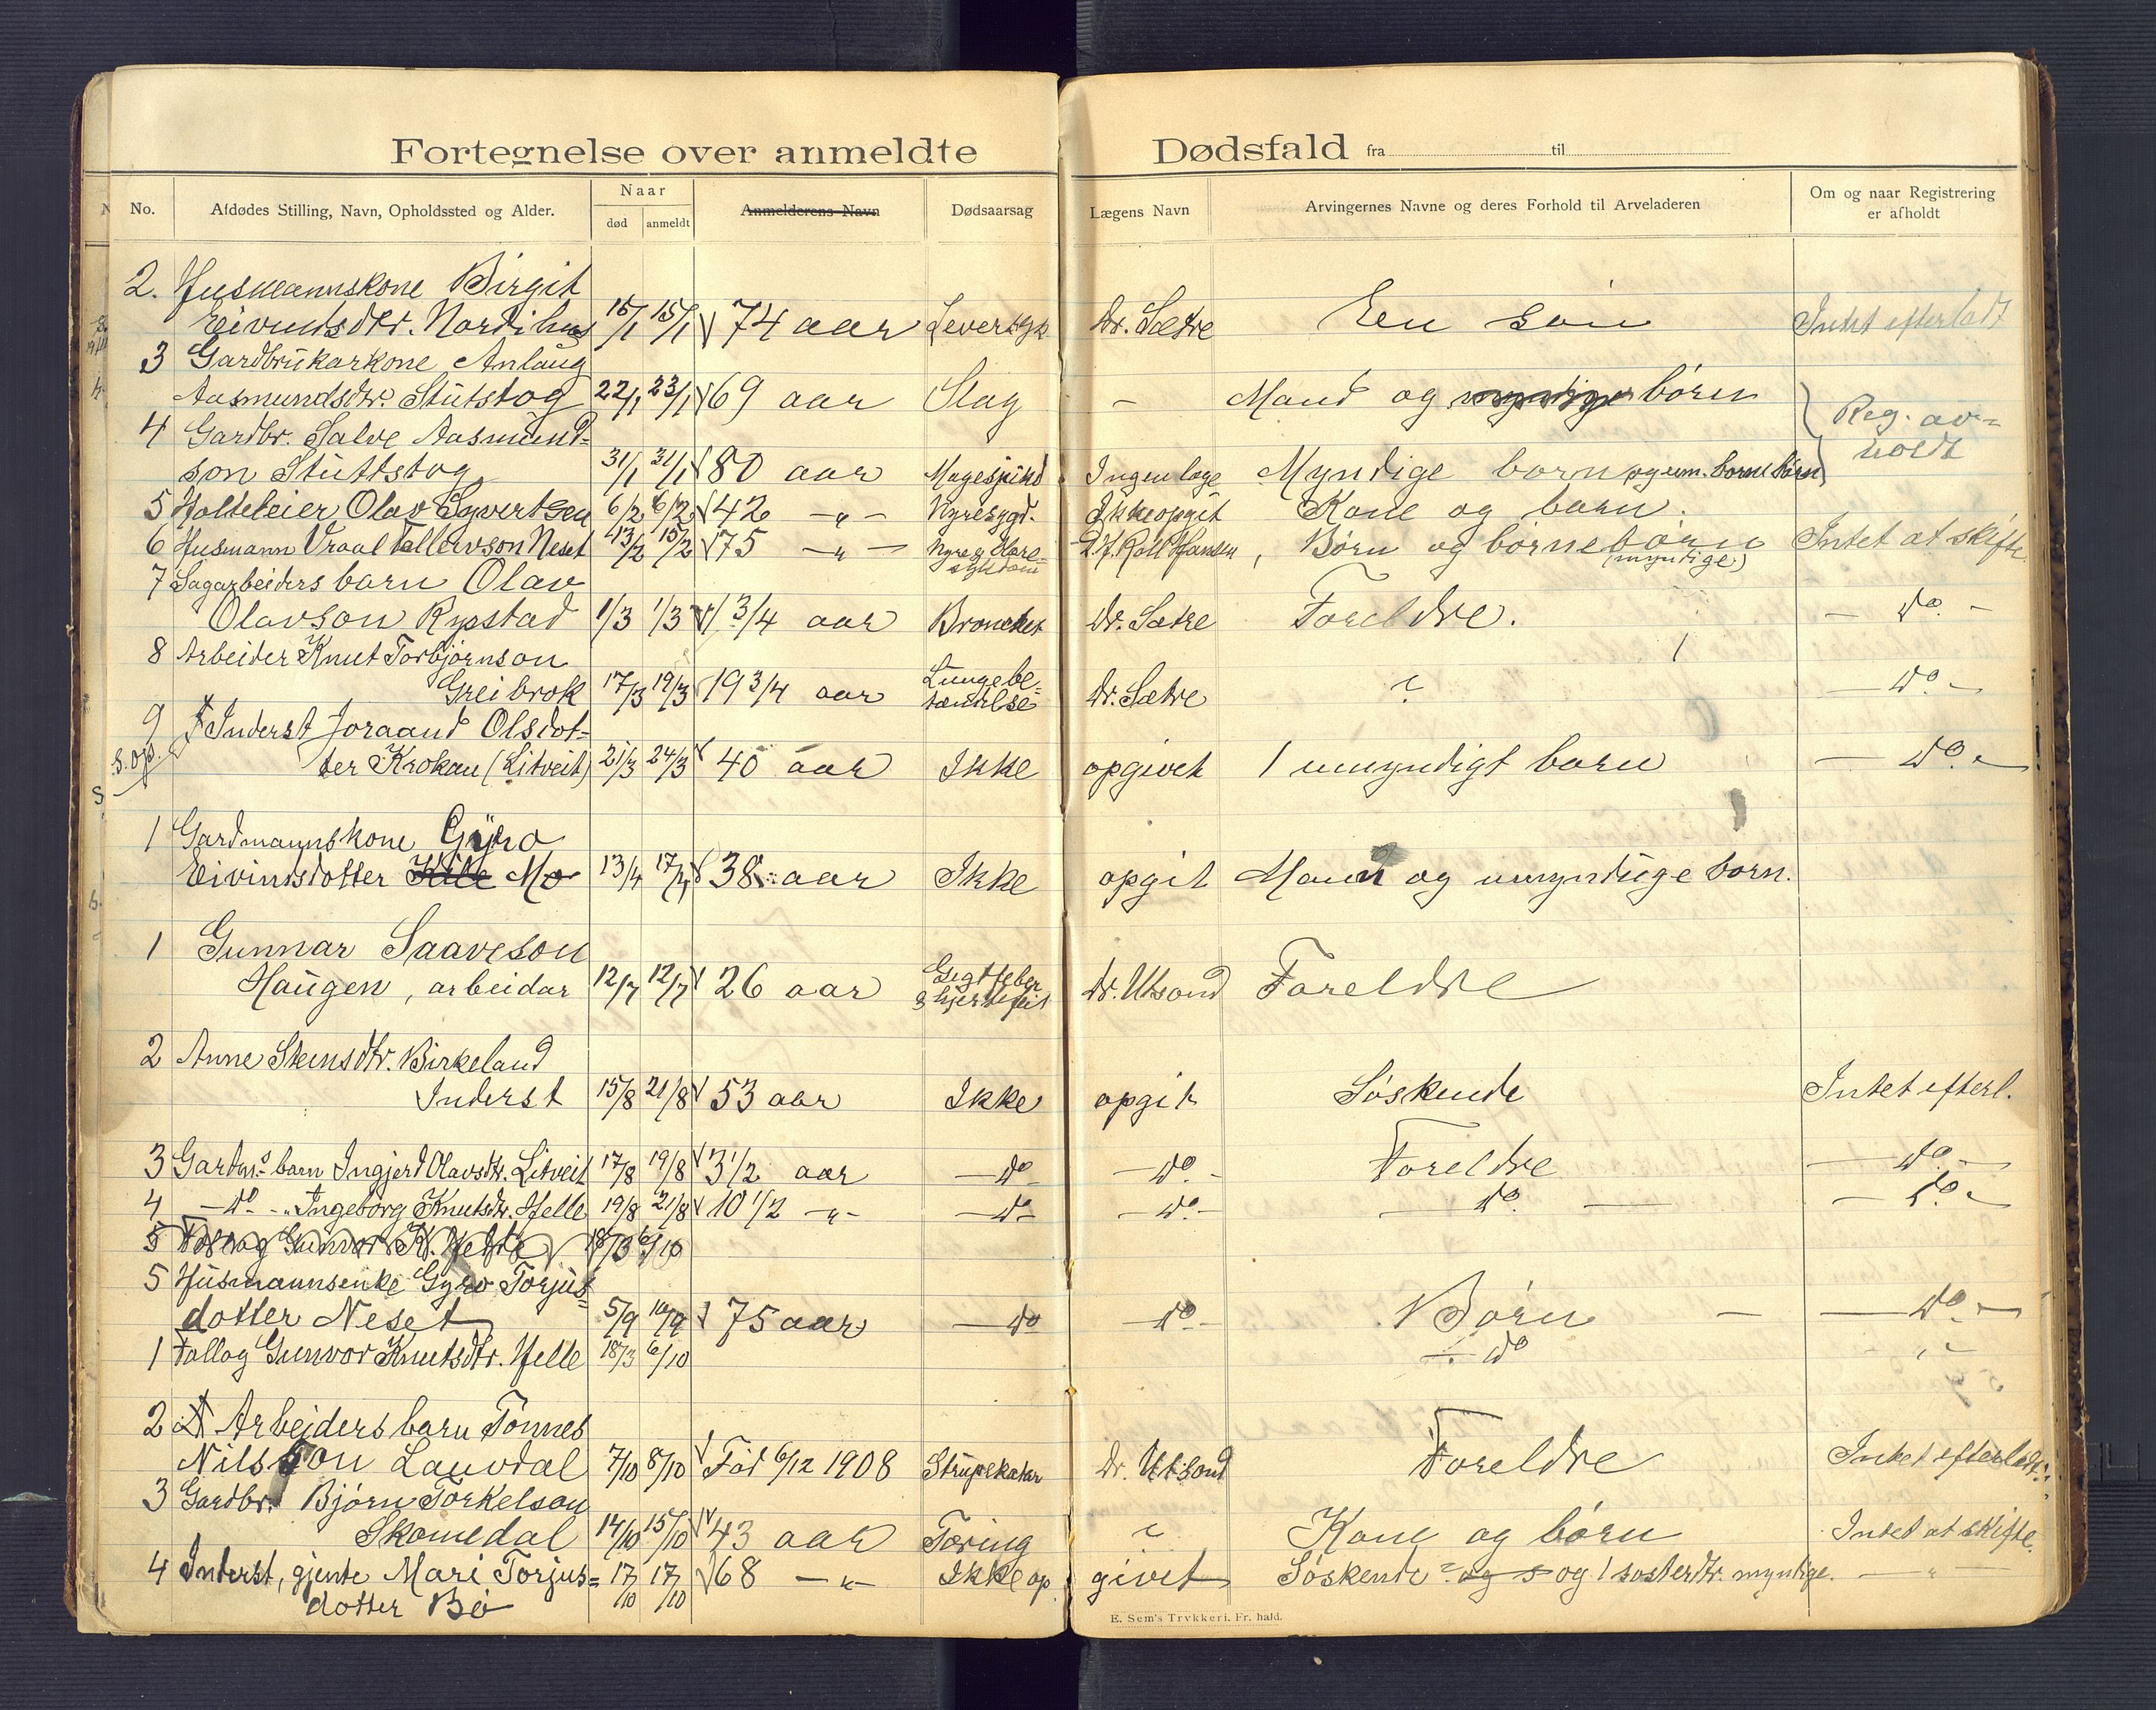 Fortegnelse over anmeldte Dødsfald fra til
No. Afdødes Stilling, Navn, Opholdssted og Alder. Naar død anmeldt Anmelderens Navn Dødsaarsag Lægens Navn Arvingernes Navne og deres Forhold til Arveladeren Om og naar Registrering er afholdt
2. Husmannskone Birgit
Eivindsdtr. Nordihus 15/1 15/1 74 aar Leversyk Dr. Sætre En søn Intet efterladt
3 Gardbrukarkone Anlaug
Aasmundsdtr. Stutstog 22/1 23/1 69 aar Slag - Mand og børn
4 Gardbr. Salve Aasmund-
son Stuttstog 31/1 31/1 80 aar Ingen læge Myndige born og um. borneborn Reg. av-
holdt
5 Olav Syvertsen 6/2 6/2 42 -„- Nyresygd. Ikke opgit Kone og barn.
6 Husmann Vraal Tallevson Neset 13/2 15/2 75 -„- Nyre og Blære
sykdom Roll Hansen, Børn og børnebørn
(myndige) Intet at skifte
7 Sagarbeiders barn Olav
Olavson Rystad 1/3 1/3 1 3/4 aar Dr. Sætre Foreldre. - do -
8 Arbeider Knut Torbjørnson
Greibrok 17/3 19/3 19 3/4 aar Lungebe-
tændelse Dr. Sætre - do -
9 Inderst Joraand Olsdot-
S. op. ter Krokan (Litveit) 21/3 24/3 40 aar Ikke opgivet 1 umyndigt barn - do -
1 Gardmannskone Gyro
Eivindsdotter Mo 13/4 17/4 38 aar Ikke opgit Mann og umyndige born.
1 Gunnar Saaveson
Haugen, arbeidar 12/7 12/7 26 aar Gigtfeber
& hjertefeil Dr. Utsond Foreldre
2 Anne Steinsdtr. Birkeland
Inderst 15/8 21/8 53 aar Ikke opgit Søskende Intet efterl.
3 Gardm.s barn Ingjerd Olavsdtr. Litveit 17/8 19/8 3 1/2 aar - do - - do - Foreldre - do -
4 - do - „ Ingeborg Knutsdtr. Helle 19/8 21/8 10 1/2 -„- - do - - do - - do - - do -
5 Gunvor K. Helle 18/3 6/10
5 Husmannsenke Gyro Torjus-
dotter Neset 5/9 10/9 75 aar - do - do - Børn - - do -
1 Follog Gunvor Knutsdtr. Helle 18/3 6/10 - do
2 Arbeiders barn Tønnes
Nilsson Lauvdal 7/10 8/10 Fød 6/12 1908 Strupekatar Dr. Utsond Foreldre Intet efterladt
3 Gardbr. Bjørn Torkelson
Skomedal 14/10 15/10 43 aar Tæring Kone og børn Intet at skifte.
4 Inderst, gjente Mari Torjus- 17/10 17/10 68 -„- Ikke op givet Søskende og s og 1 søsterdtr. myndige. - „ -
dotter Bø
E. Sem's Trykkeri, Fr. hald.